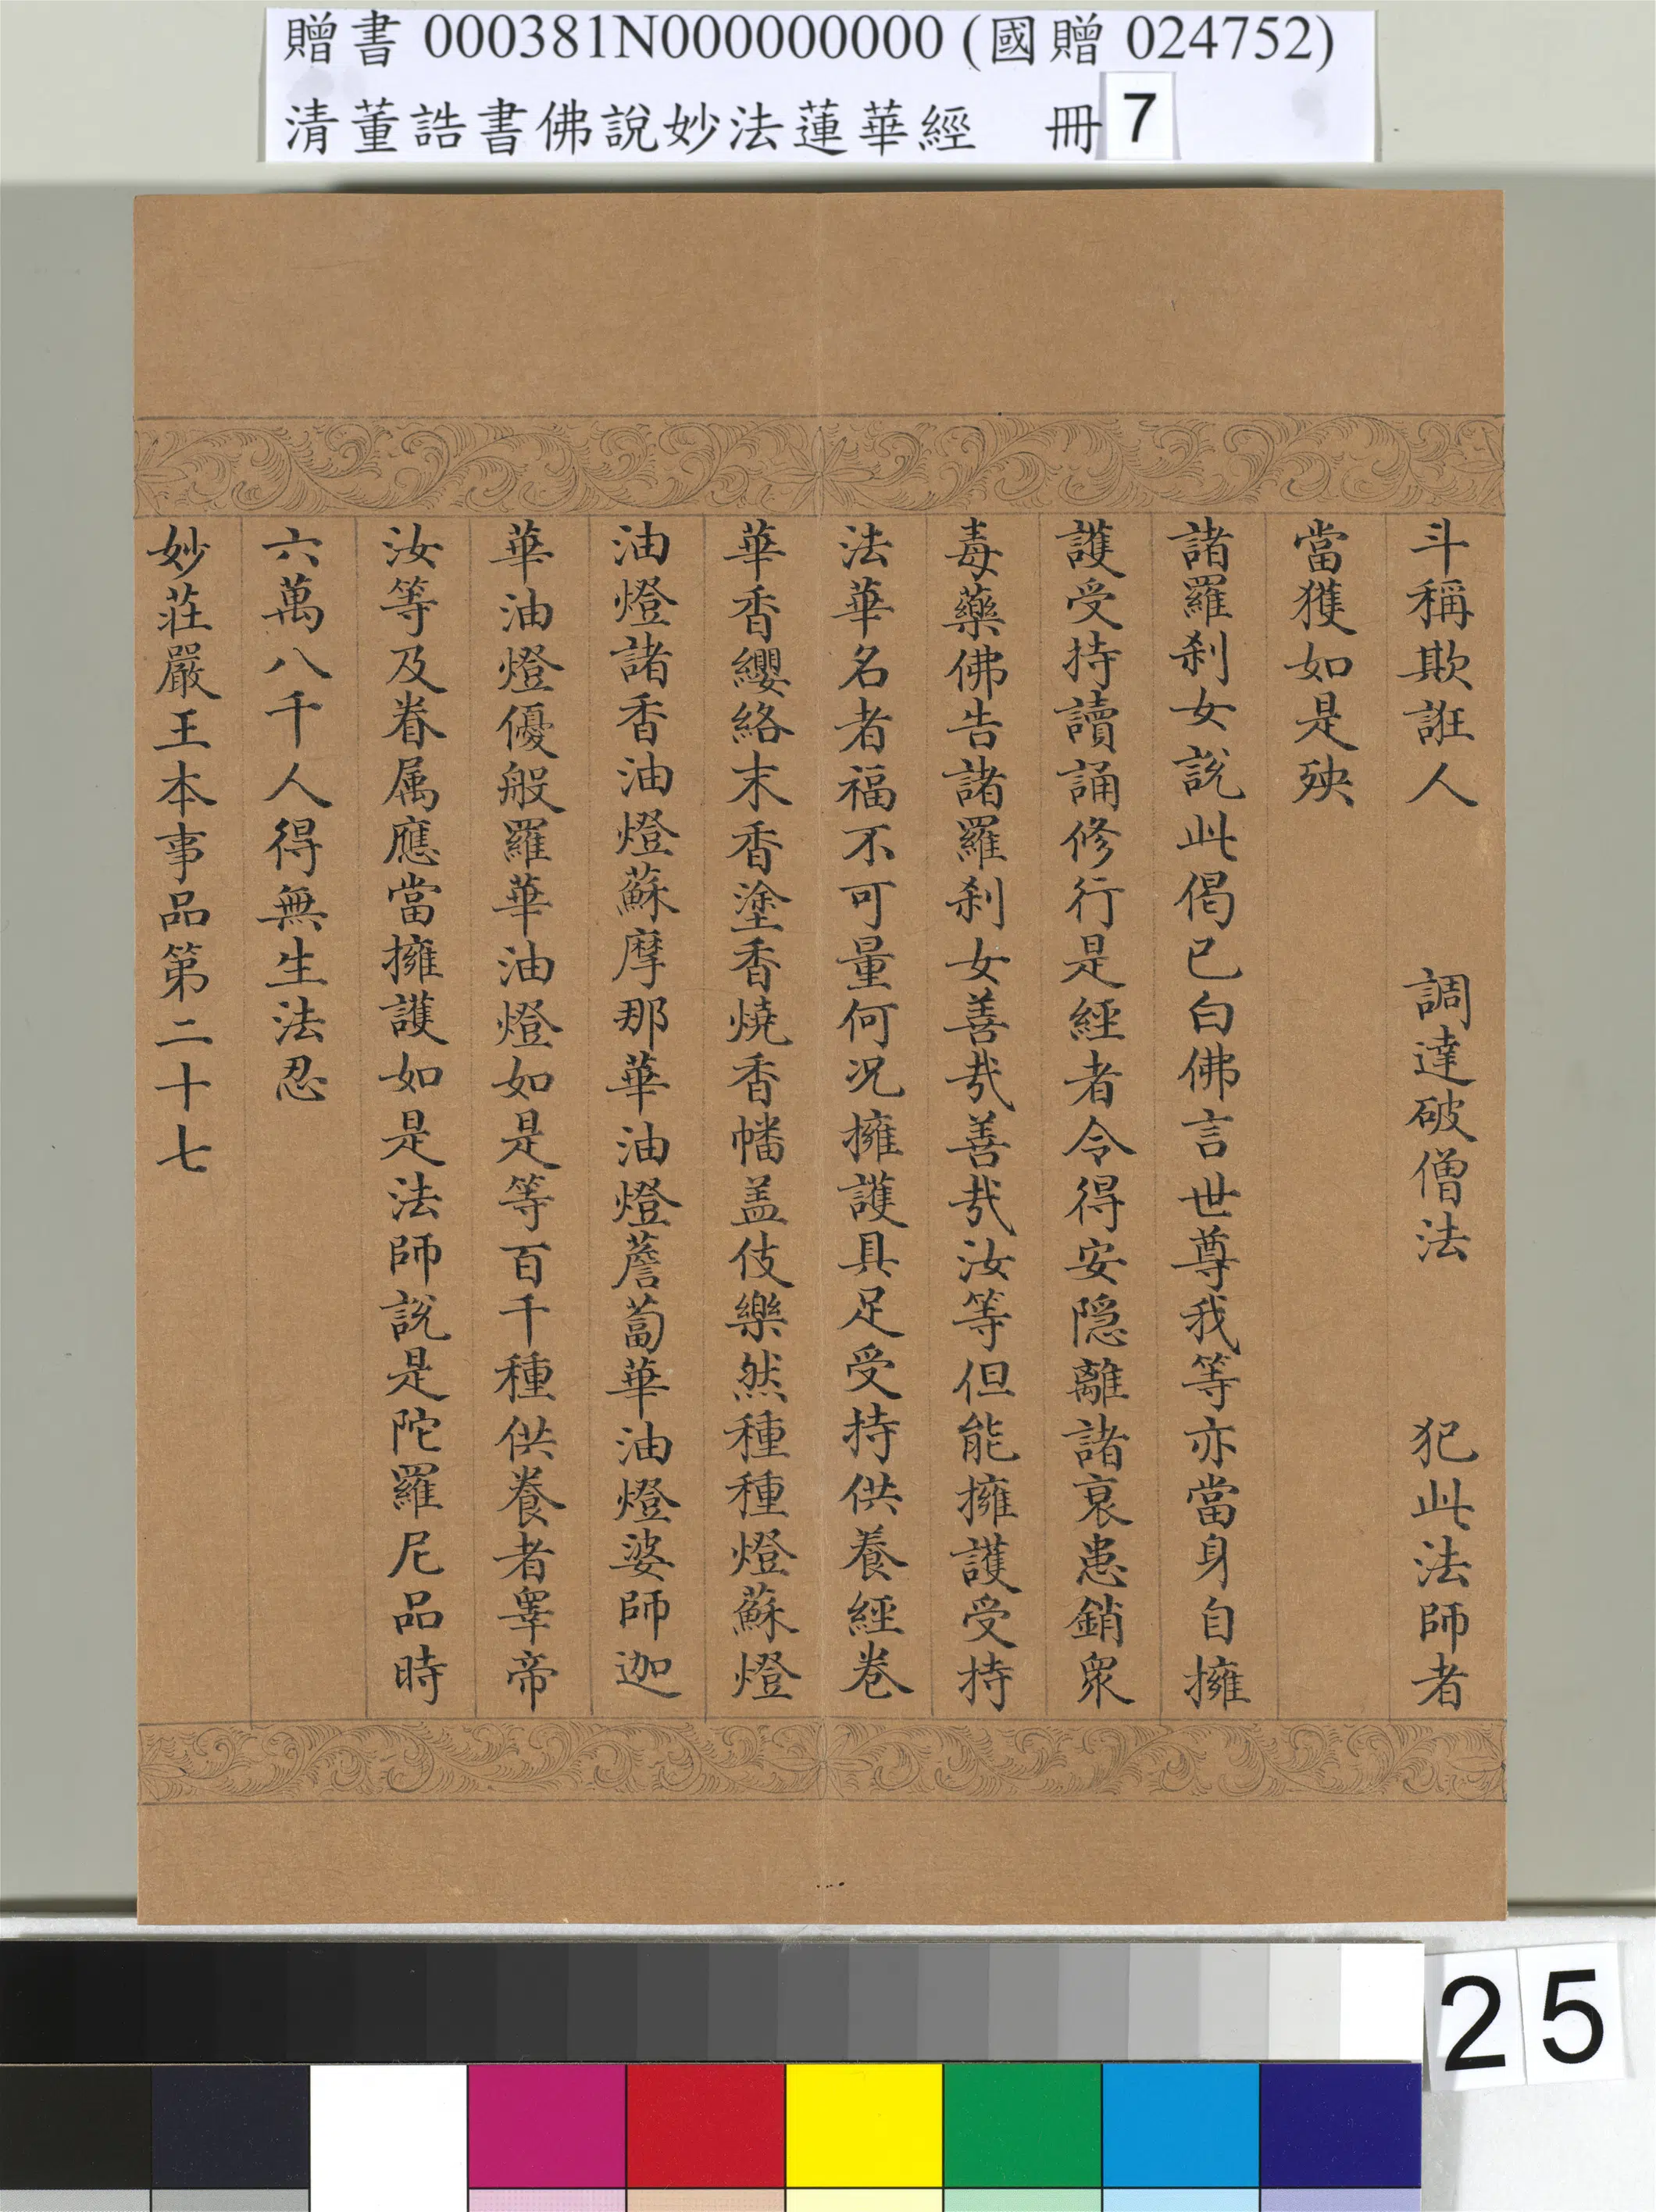 贈書 000381N000000000 (國贈 024752)
清董誥書佛說妙法蓮華經 冊 7
斗稱欺誑人 調達破僧法 犯此法師者
當獲如是殃
諸羅刹女說此偈已白佛言世尊我等亦當身自擁
護受持讀誦修行是經者令得安隱離諸衰患銷眾
毒藥佛告諸羅刹女善哉善哉汝等但能擁護受持
法華名者福不可量何況擁護具足受持供養經卷
華香纓絡末香塗香燒香幡盖伎樂然種種燈蘇燈
油燈諸香油燈蘇摩那華油燈薝蔔華油燈婆師迦
華油燈優般羅華油燈如是等百千種供養者睪帝
汝等及眷属應當擁護如是法師說是陀羅尼品時
六萬八千人得無生法忍
妙莊嚴王本事品第二十七
25